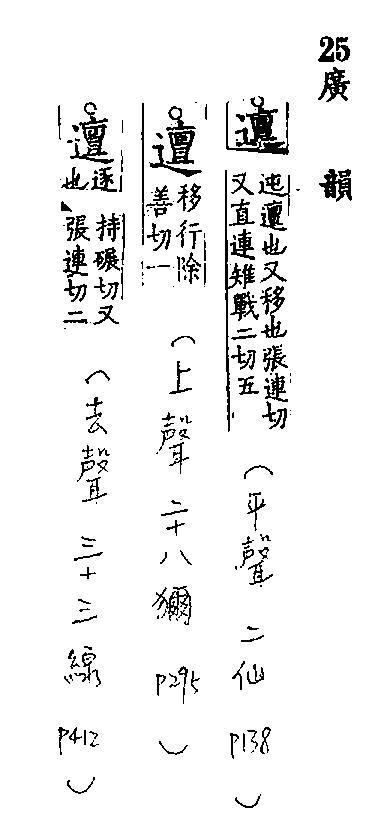 25廣韻
邅 迍邅也又移也張連切又直連雉戰二切五 (平聲 二仙 P138)
邅 移行除善切一 (上聲 二十八獮 P295)
邅 逐也 持碾切又張連切二 (去聲 三十三線 P412)